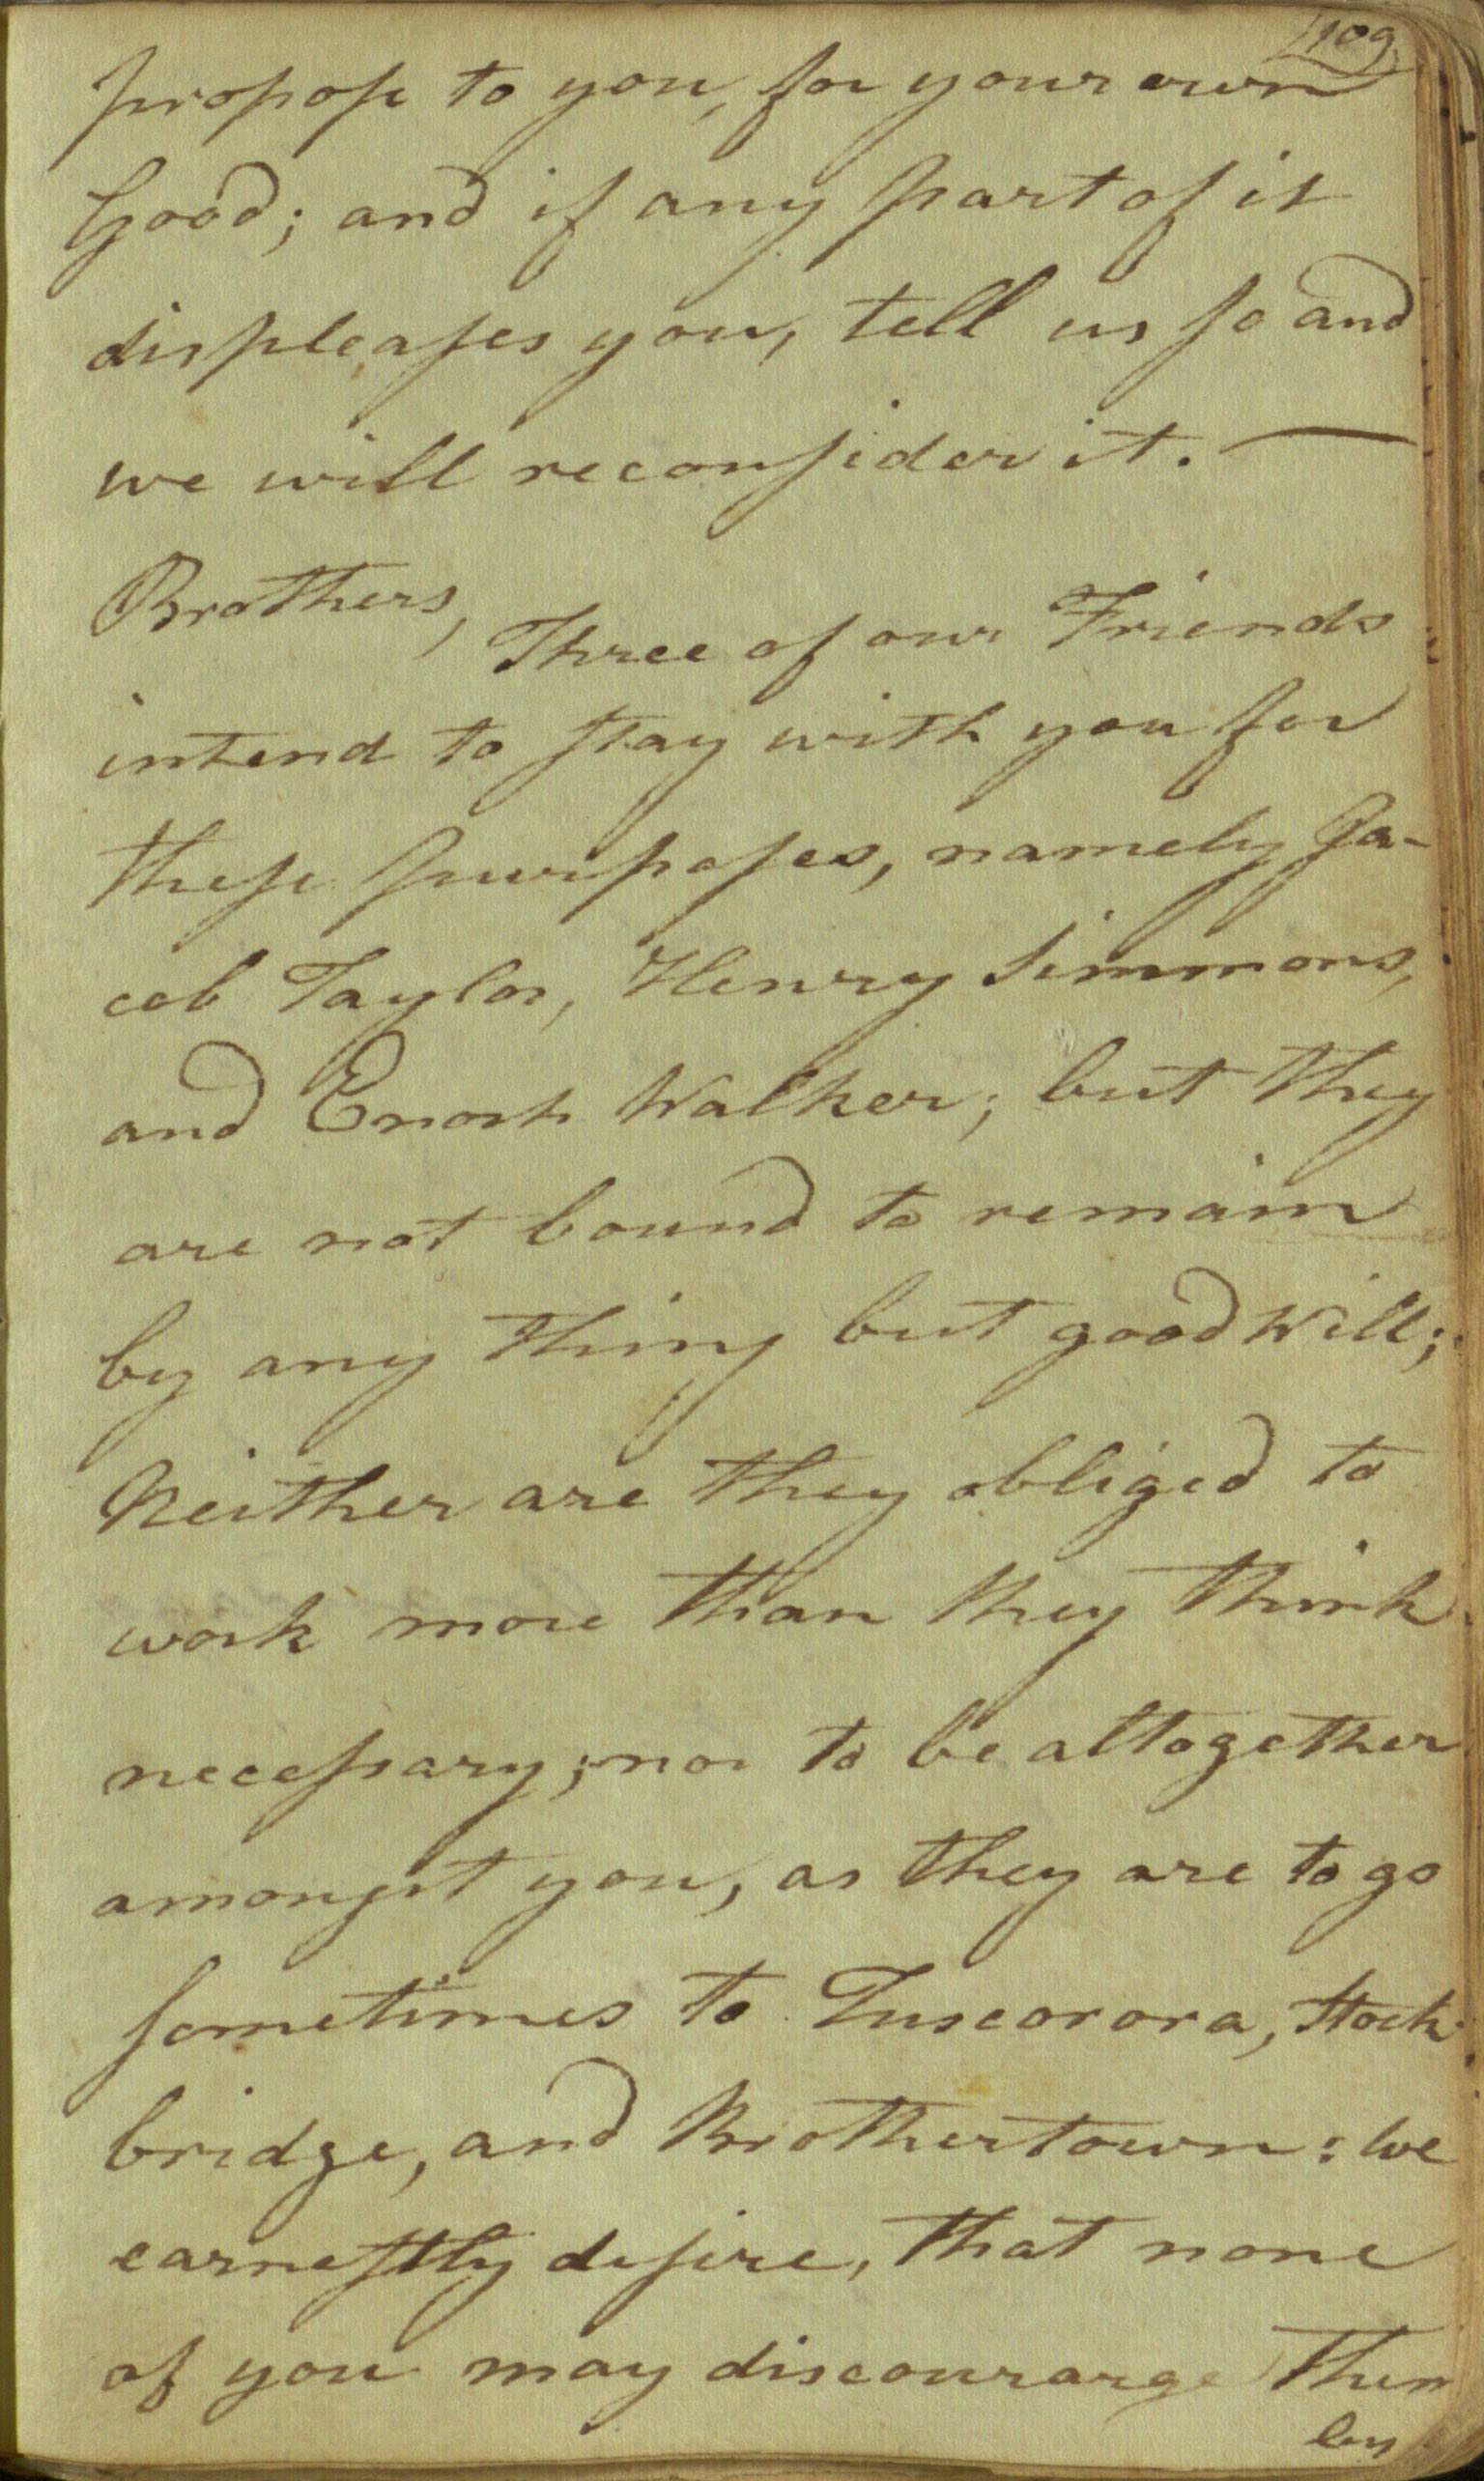 109
propose to you, for your own
Good; and if any part of it
displeases you, tell us so and
we will reconsider it. —
Brothers, Three of our Friends
intend to stay with you for
these purposes, namely Ja-
cob Taylor, Henry Simmons,
and Enoch Walker; but they
are not bound to remain
by any thing but good Will;
Neither are they obliged to
work more than they think
necessary; nor to be altogether
amongst you, as they are to go
sometimes to Tuscorora, Stock
bridge, and Brothertown: We
earnestly desire, that none
of you may discourarge them
by